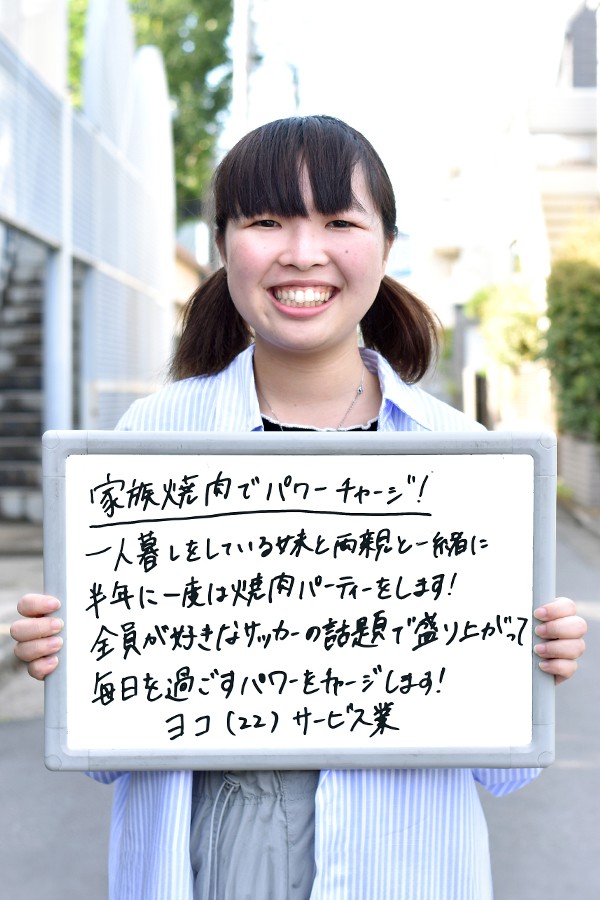 家族焼肉でパワーチャージ!
一人暮しをしている妹と両親と一緒に
半年に一度は焼肉パーティーをします!
全員が好きなサッカーの話題で盛り上がって
毎日を過ごすパワーをチャージします!
ヨコ(22)サービス業